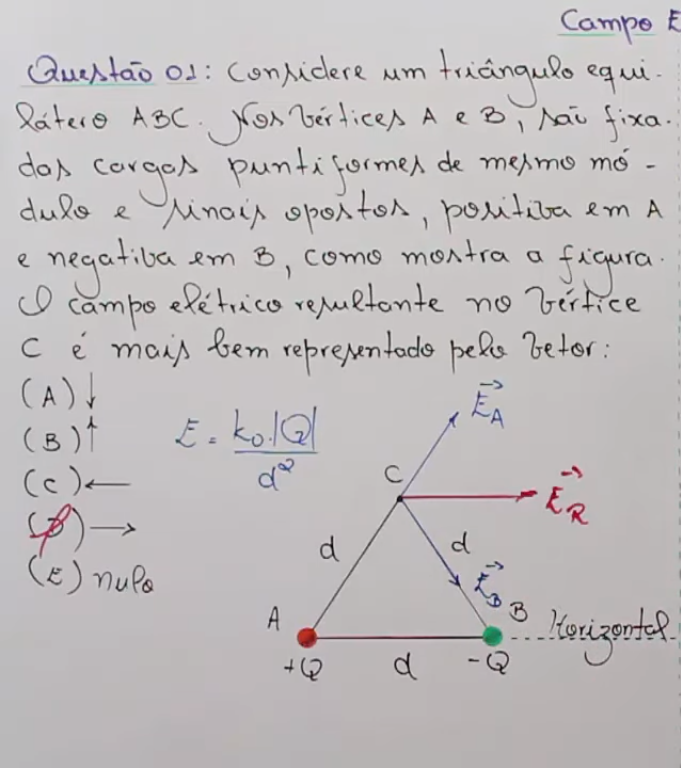 Campo E
Questão 01: Considere um triângulo equi-
látero ABC. Nos vértices A e B, são fixa-
das cargas puntiformes de mesmo mó-
dulo e sinais opostos, positiva em A
e negativa em B, como mostra a figura.
O campo elétrico resultante no vértice
C é mais bem representado pelo vetor:
(A) ↓
(B) ↑
(C) ←
(D) →
(E) nulo
E = k₀.|Q|
d²
E⃗A
C
E⃗R
d
d
E⃗B
A
B
Horizontal
+Q
d
-Q